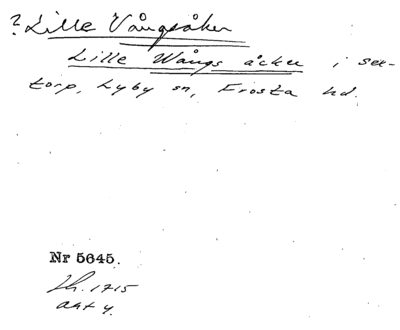 ? Lille Vångsåker
Lille Wångs åcker i
torp, Lyby sn, Frosta hd.
Nr 5645.
1715
akt 4.